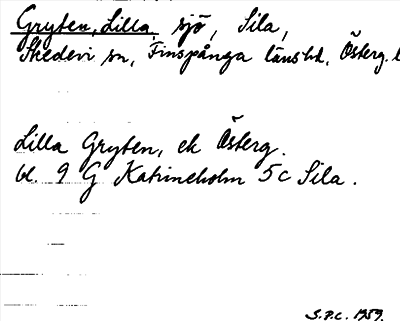 Gryten, Lilla, sjö, Sila,
Skedevi sn, Finspånga länshd, Österg. l
Lilla Gryten, ek Österg.
bl. 9 G Katrineholm 5c Sila.
S.P.C. 1959.